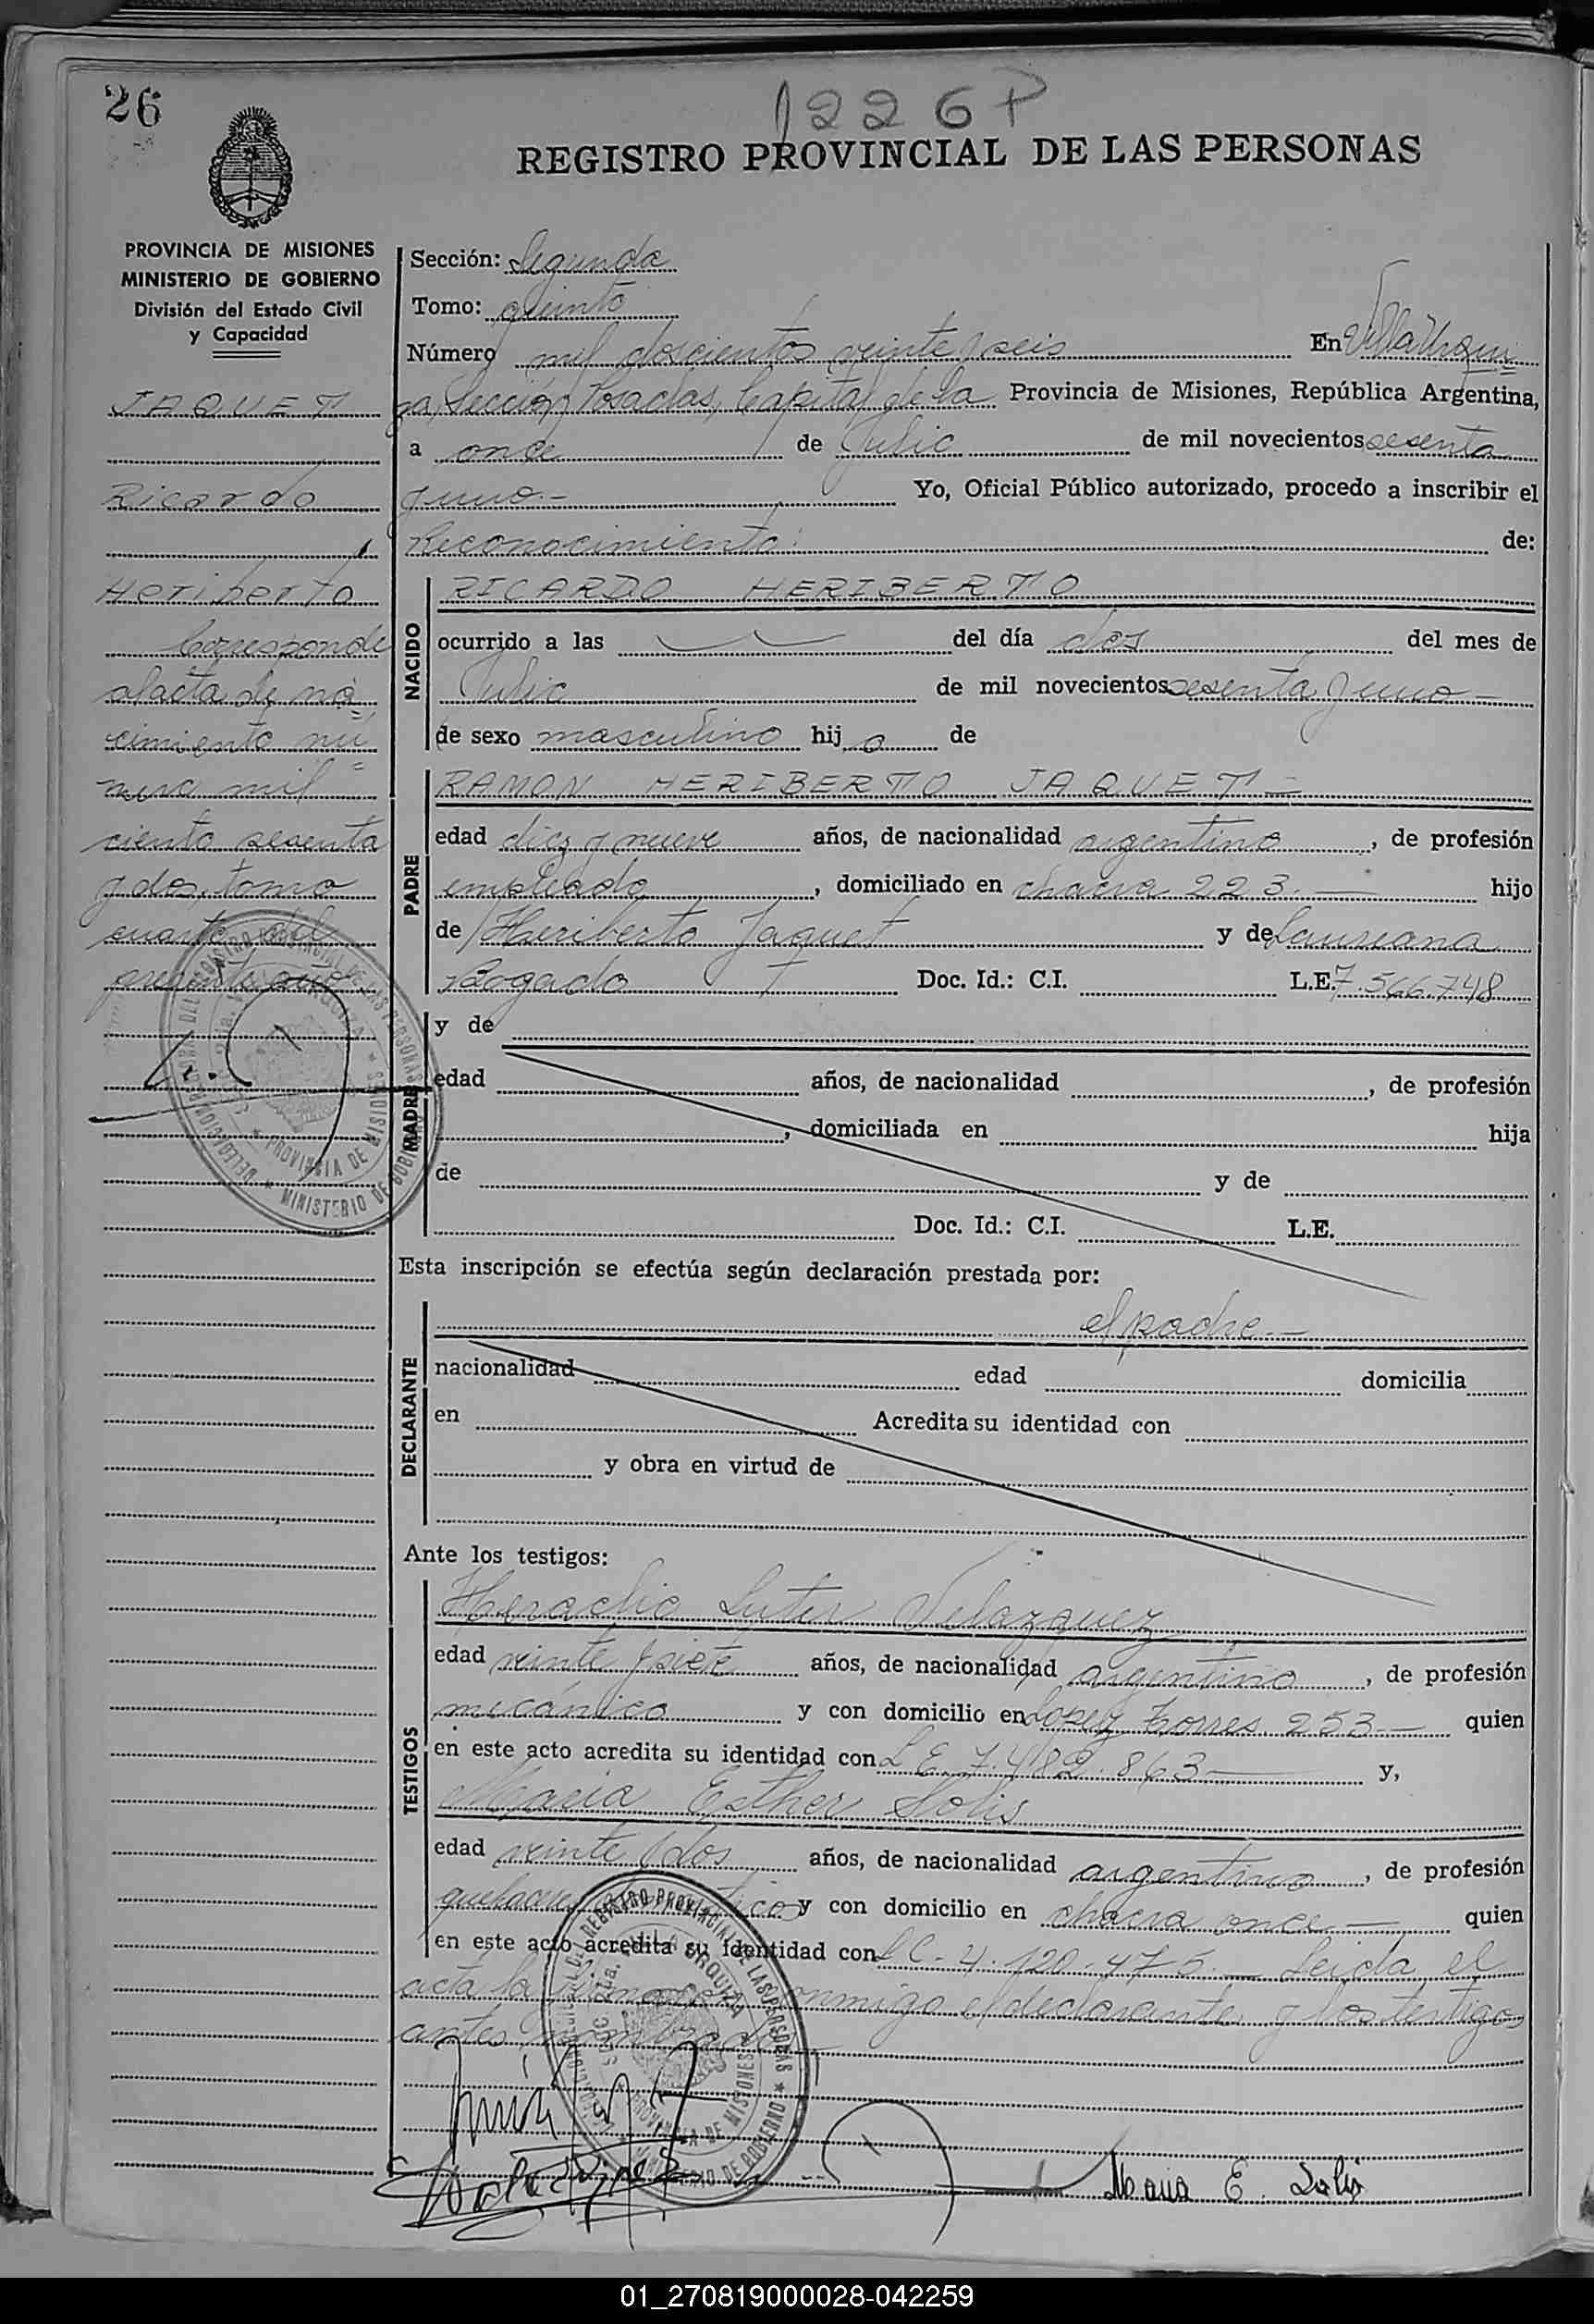 26
1226 P
REGISTRO PROVINCIAL DE LAS PERSONAS
PROVINCIA DE MISIONES
MINISTERIO DE GOBIERNO
División del Estado Civil
y Capacidad
JAQUET
Ricardo
Heriberto
Corresponde
al acta de na=
cimiento nú=
mero mil
ciento sesenta
y dos, tomo
cuarto del
presente año
Sección: Segunda
Tomo: quinto
Número mil doscientos veinte y seis En Villa Urqui=
za, Sección, Posadas, Capital de la Provincia de Misiones, República Argentina,
a once de Julio de mil novecientos sesenta
y uno.- Yo, Oficial Público autorizado, procedo a inscribir el
Reconocimiento: de:
NACIDO
RICARDO HERIBERTO
ocurrido a las del día dos del mes de
Julio de mil novecientos sesenta y uno -
de sexo masculino hijo de
PADRE
RAMON HERIBERTO JAQUET -
edad diez y nueve años, de nacionalidad argentino, de profesión
empleado, domiciliado en chacra 223. - hijo
de Heriberto Jaquet y de Laureana
Bogado Doc. Id.: C.I. L.E. 7.566.748
MADRE
y de
edad años, de nacionalidad , de profesión
, domiciliada en hija
de y de
Doc. Id.: C.I. L.E.
Esta inscripción se efectúa según declaración prestada por:
DECLARANTE
el padre. -
nacionalidad edad domicilia
en Acredita su identidad con
y obra en virtud de
Ante los testigos:
TESTIGOS
Heraclio Velazquez
edad veinte y siete años, de nacionalidad argentino, de profesión
mecánico y con domicilio en Lopez Torres 253 - quien
en este acto acredita su identidad con L E. 7.482.863 - y,
Maria Esther Solis
edad veinte y dos años, de nacionalidad argentina, de profesión
quehaceres domésticos y con domicilio en chacra once - quien
en este acto acredita su identidad con L C. 4.120.475. - Leida el
acta la firman conmigo el declarante y los testigos
antes nombrados
Maria E. Solis
DELEGACION REGISTRO PROVINCIAL DE LAS PERSONAS
PROVINCIA DE MISIONES
MINISTERIO DE GOBIERNO
01_270819000028-042259